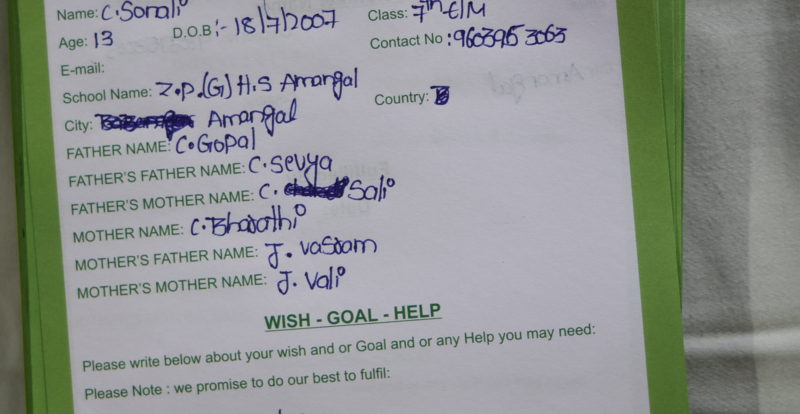 Name: C. Sonali
Age: 13 D.O.B :- 18/7/2007 Class: 7th E/M
Contact No : 9603953063
E-mail:
School Name: Z.P.(G) H.S Amangal
City: Amangal Country:
FATHER NAME: C. Gopal
FATHER'S FATHER NAME: C. Sevya
FATHER'S MOTHER NAME: C. Sali
MOTHER NAME: C. Bharathi
MOTHER'S FATHER NAME: J. Vasram
MOTHER'S MOTHER NAME: J. Vali
WISH - GOAL - HELP
Please write below about your wish and or Goal and or any Help you may need:
Please Note : we promise to do our best to fulfil: